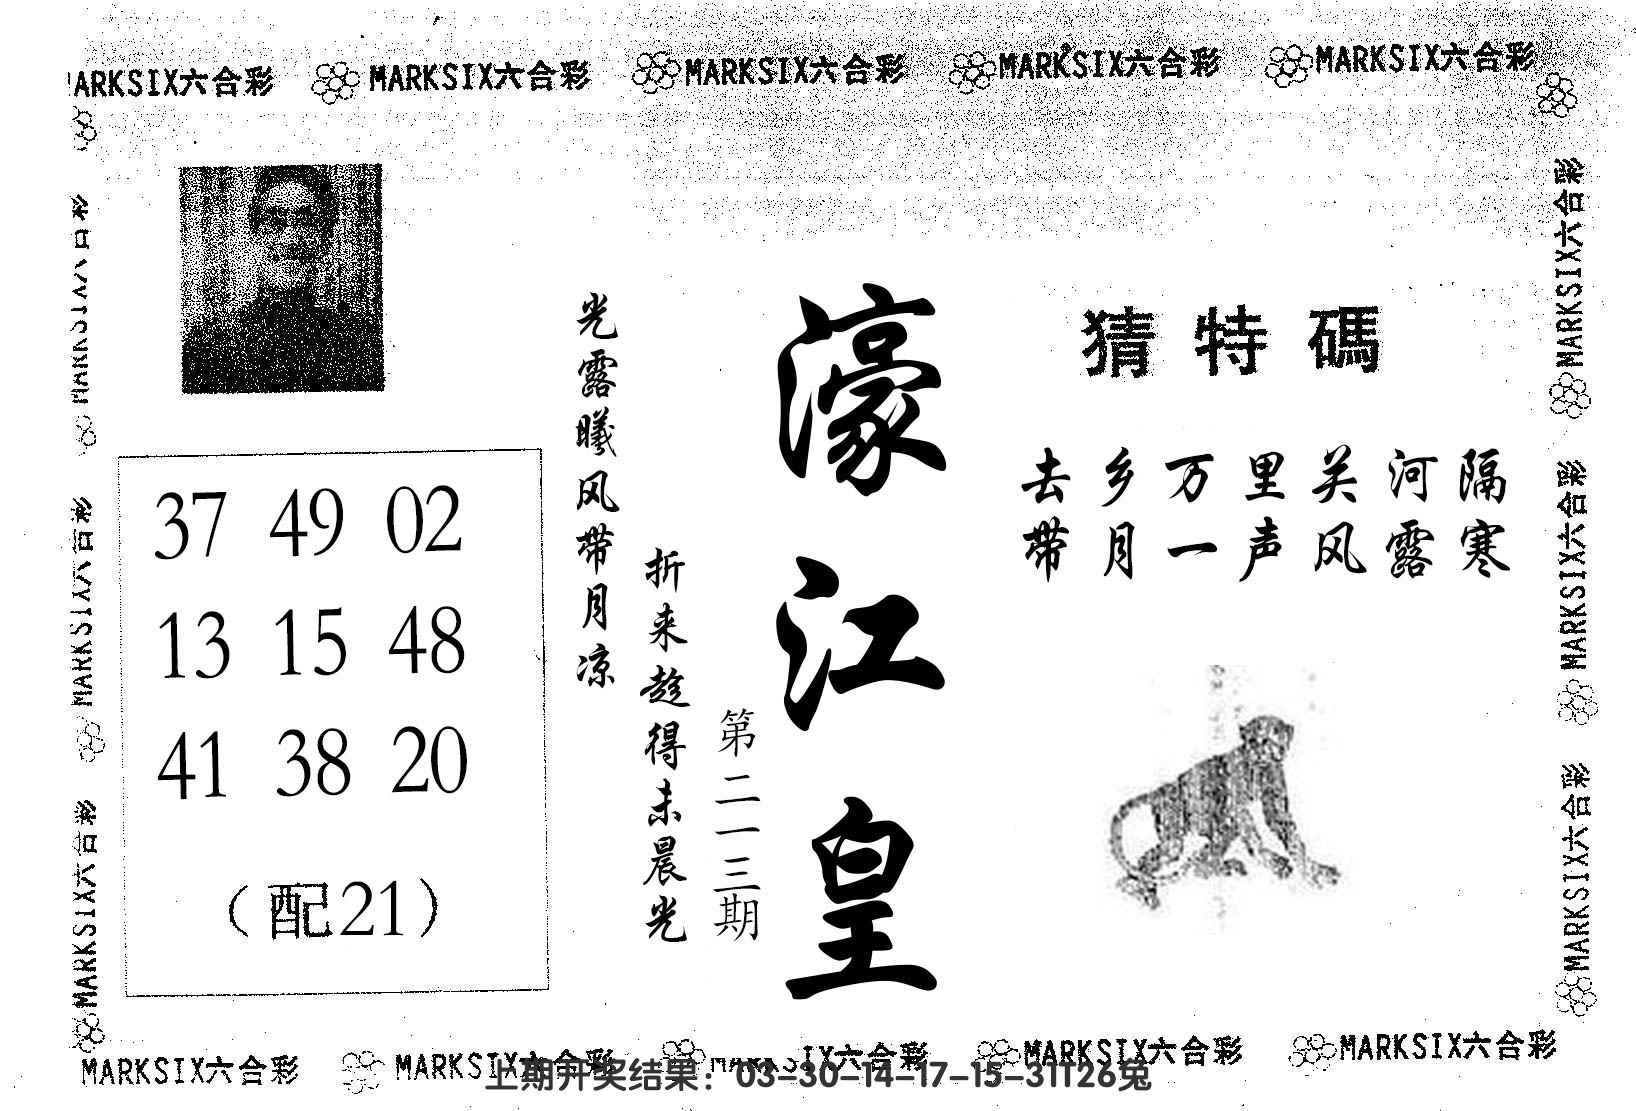 MARKSIX六合彩 MARKSIX六合彩 MARKSIX六合彩 MARKSIX六合彩 MARKSIX六合彩
猜特碼
去乡万里关河隔
带月一声风露寒
濠江皇
第二一三期
折来趁得未晨光
光露曦风带月凉
37 49 02
13 15 48
41 38 20
（配21）
MARKSIX六合彩
MARKSIX六合彩
MARKSIX六合彩
MARKSIX六合彩
MARKSIX六合彩
MARKSIX六合彩
MARKSIX六合彩 MARKSIX六合彩 MARKSIX六合彩 MARKSIX六合彩 MARKSIX六合彩
上期开奖结果：03-30-14-17-15-31T26兔